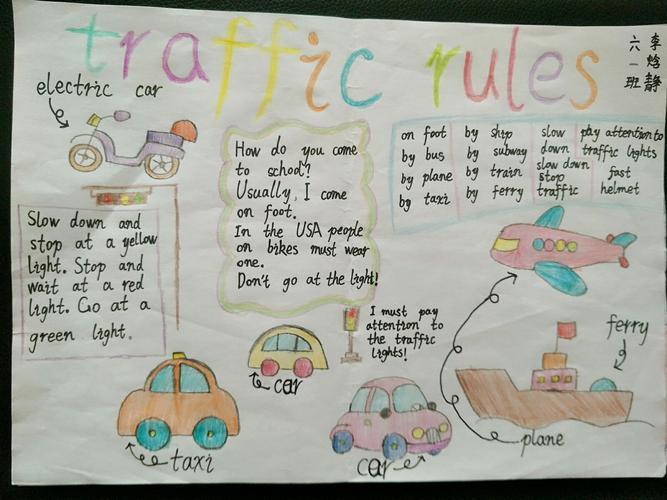 traffic rules
李焓静
六一班
electric car
Slow down and
stop at a yellow
light. Stop and
wait at a red
light. Go at a
green light.
How do you come
to school?
Usually, I come
on foot.
In the USA people
on bikes must wear
one.
Don't go at the light!
on foot
by bus
by plane
by taxi
by ship
by subway
by train
by ferry
slow
down
slow down
stop
traffic
pay attention to
traffic lights
fast
helmet
I must pay
attention to
the traffic
lights!
ferry
car
taxi
car
plane